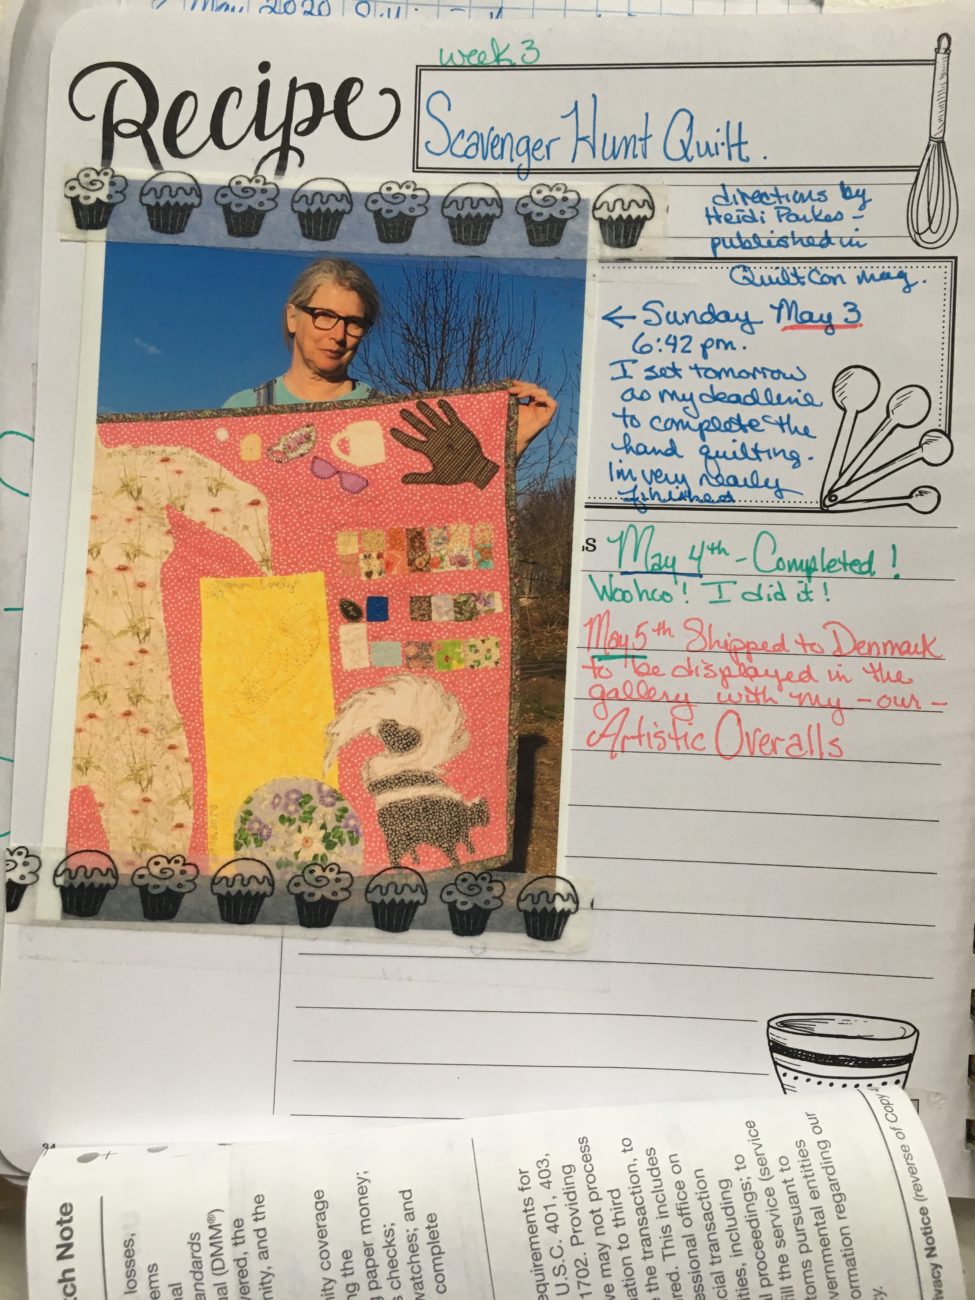 May 2020
week 3
Recipe
Scavenger Hunt Quilt.
directions by
Heidi Parkes -
published in
QuiltCon mag.
← Sunday May 3
6:42 pm.
I set tomorrow
as my deadline
to complete the
hand quilting.
I'm very nearly
finished
May 4th - Completed!
Woohoo! I did it!
May 5th Shipped to Denmark
to be displayed in the
gallery with my - our -
Artistic Overalls
2020
tch Note
losses,
ems
nal
andards
al (DMM®)
vered, the
nity, and the
ity coverage
ng the
g paper money;
s checks;
watches; and
complete
equirements for
U.S.C. 401, 403,
1702. Providing
we may not process
nation to third
the transaction, to
red. This includes
essional office on
cial transaction
ities, including
l proceedings; to
fill the service (service
toms pursuant to
vernmental entities
ormation regarding our
cy.
ivacy Notice (reverse of Copy